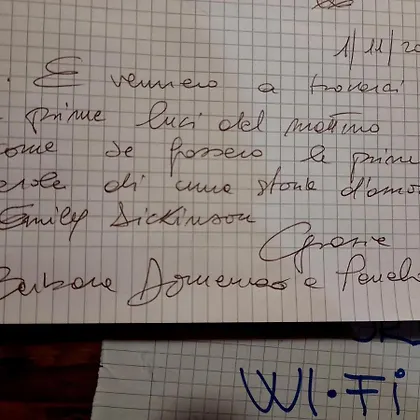 1/11/20
. E vennero a trovarci
prime luci del mattino
ome se fossero le prime
arole di una storia d'amor
Emily Dickinson
Grazie
Barbara Domenico e
WI-FI